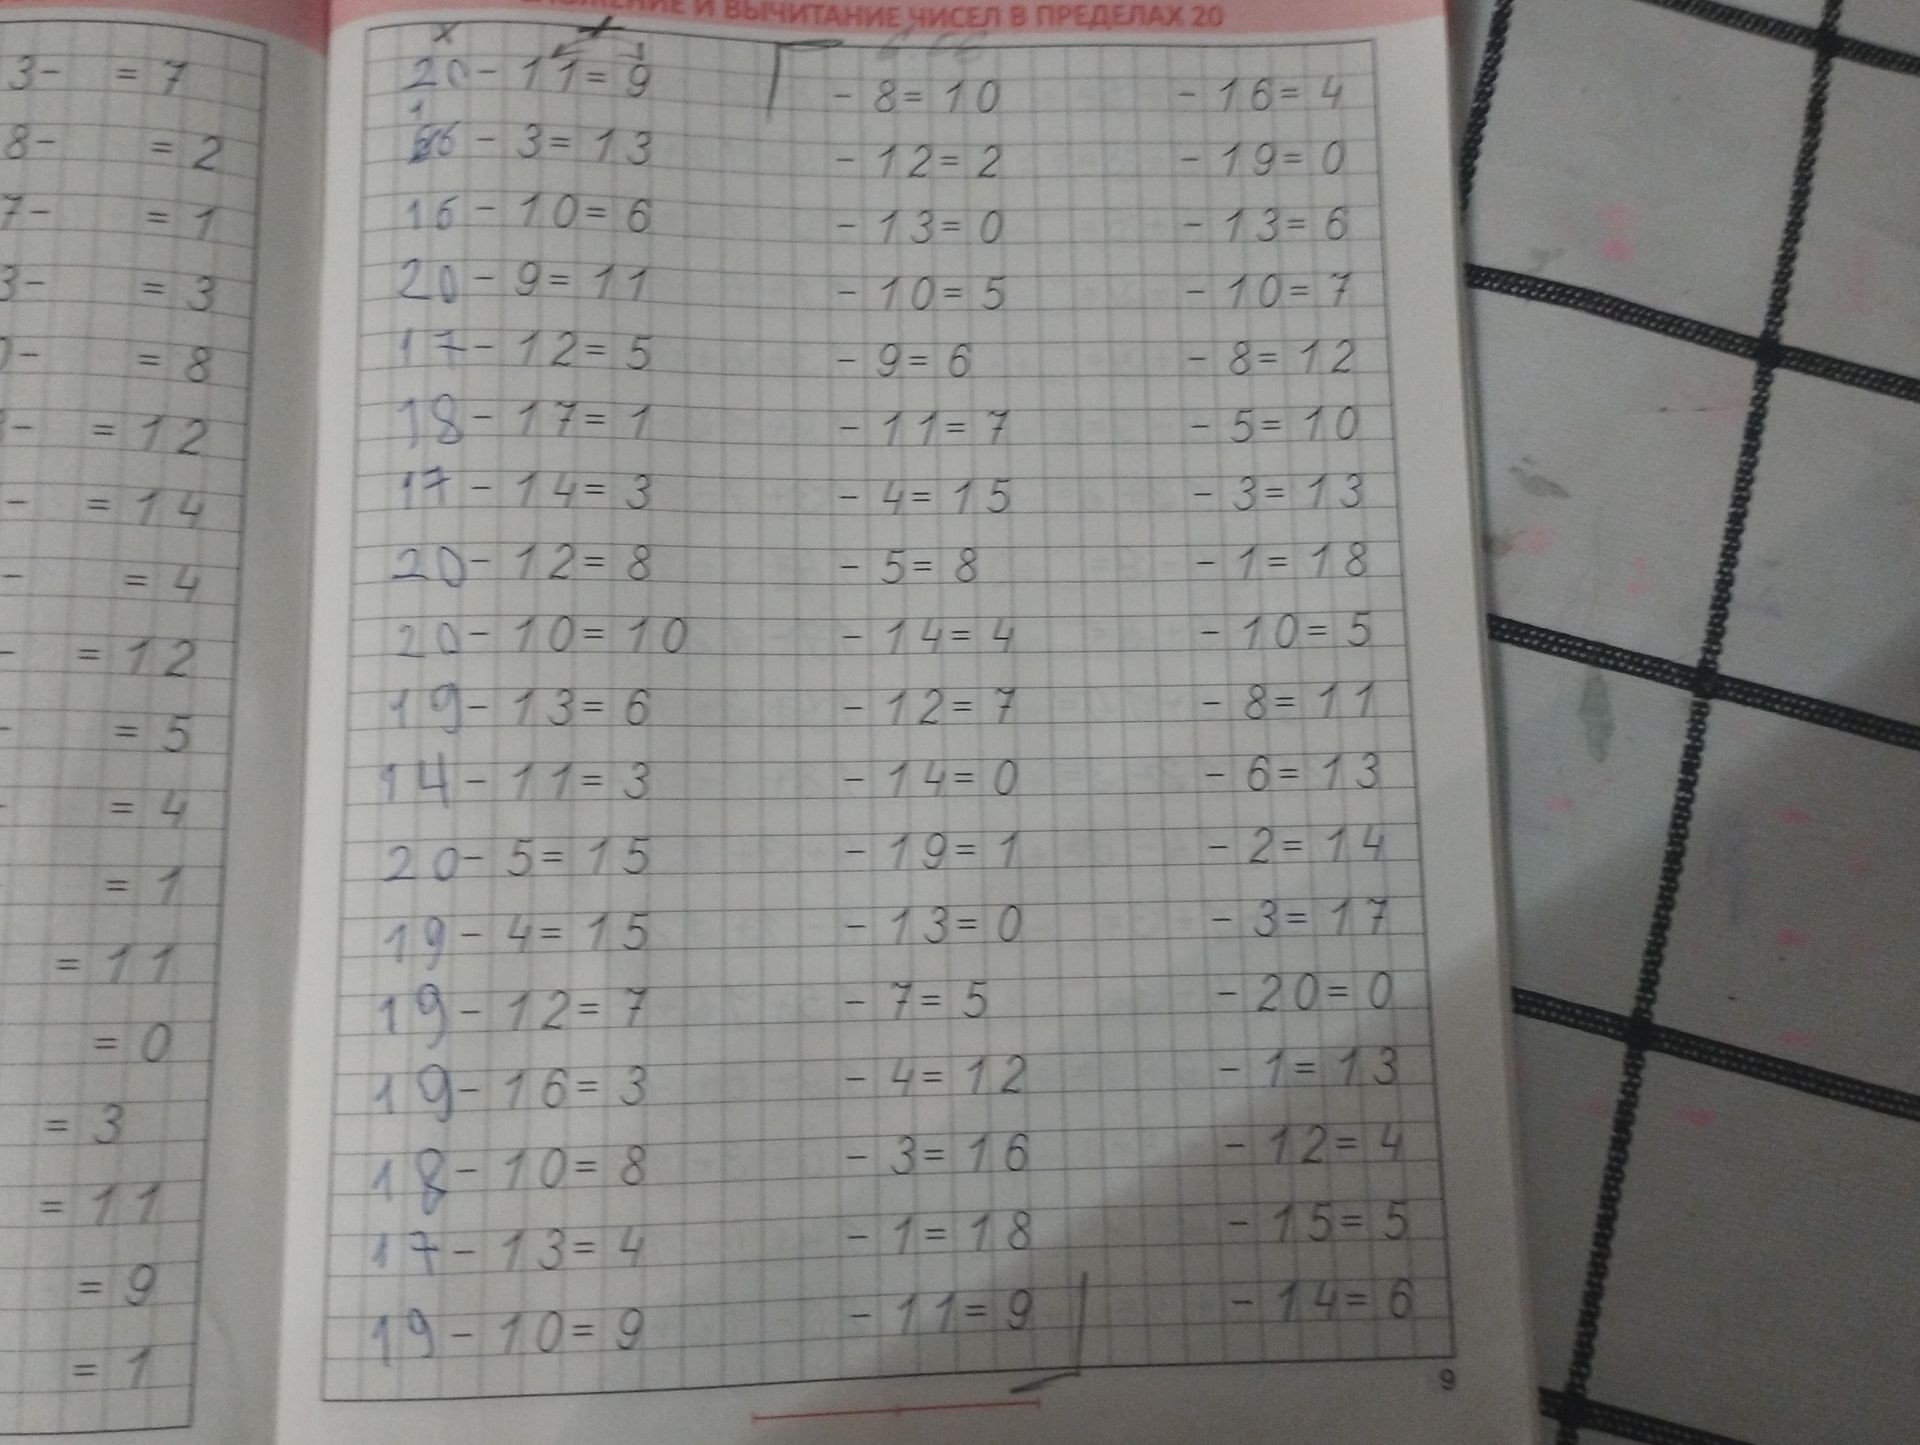 3- = 7
8- = 2
7- = 1
3- = 3
- = 8
- = 12
- = 14
- = 4
- = 12
- = 5
- = 4
= 1
= 11
= 0
= 3
= 11
= 9
= 1
И ВЫЧИТАНИЕ ЧИСЕЛ В ПРЕДЕЛАХ 20
x
20 - 11 = 9
16 - 3 = 13
16 - 10 = 6
20 - 9 = 11
17 - 12 = 5
18 - 17 = 1
17 - 14 = 3
20 - 12 = 8
20 - 10 = 10
19 - 13 = 6
14 - 11 = 3
20 - 5 = 15
19 - 4 = 15
19 - 12 = 7
19 - 16 = 3
18 - 10 = 8
17 - 13 = 4
19 - 10 = 9
- 8 = 10
- 12 = 2
- 13 = 0
- 10 = 5
- 9 = 6
- 11 = 7
- 4 = 15
- 5 = 8
- 14 = 4
- 12 = 7
- 14 = 0
- 19 = 1
- 13 = 0
- 7 = 5
- 4 = 12
- 3 = 16
- 1 = 18
- 11 = 9
- 16 = 4
- 19 = 0
- 13 = 6
- 10 = 7
- 8 = 12
- 5 = 10
- 3 = 13
- 1 = 18
- 10 = 5
- 8 = 11
- 6 = 13
- 2 = 14
- 3 = 17
- 20 = 0
- 1 = 13
- 12 = 4
- 15 = 5
- 14 = 6
9